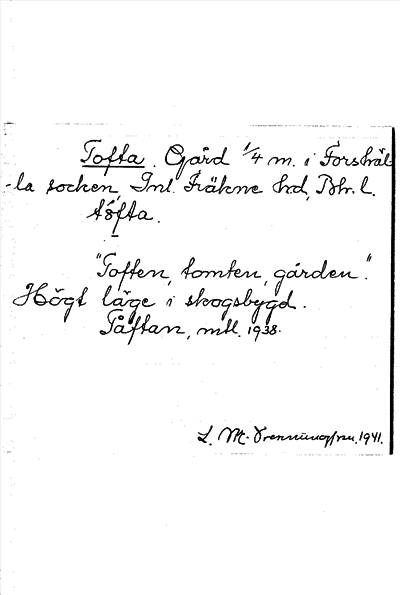 Tofta. Gård 1/4 m. i Forshäl-
-la socken, Inl. Fräkne hd, Bhr. l.
tôfta.
"Toften, tomten, gården".
Högt läge i skogsbygd.
Tåftan, mtl. 1938.
L. M. 1941.